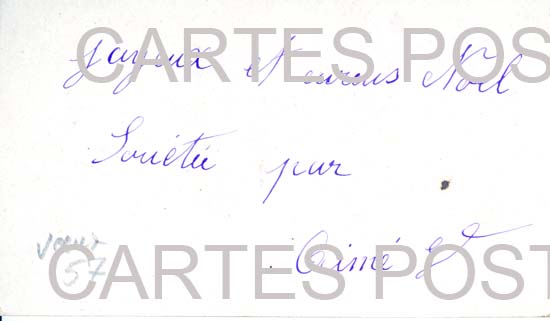 CARTES POST
Joyeux et eureus Noël
Souétée par
Aimé
57
CARTES POST